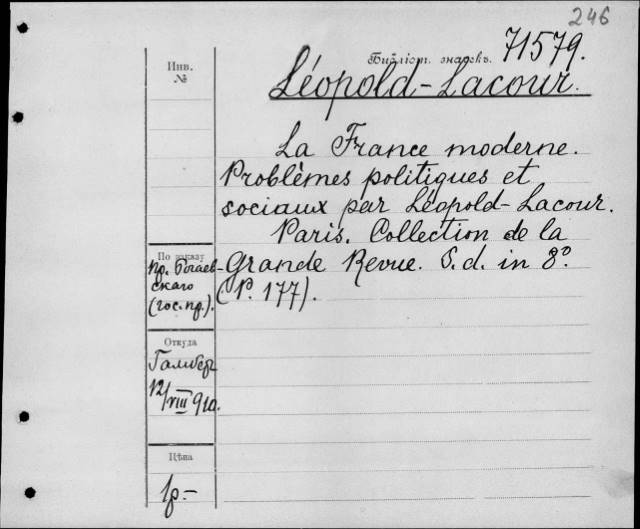 246
Библіот. значекъ. 71579.
Инв.
№
Léopold-Lacour.
La France moderne.
Problèmes politiques et
sociaux par Léopold-Lacour.
Paris. Collection de la
Grande Revue. S.d. in 8°.
(P. 177).
По заказу
пр. Богаев-
скаго
(гос. пр.).
Откуда
12/VIII 910.
Цѣна
1р-